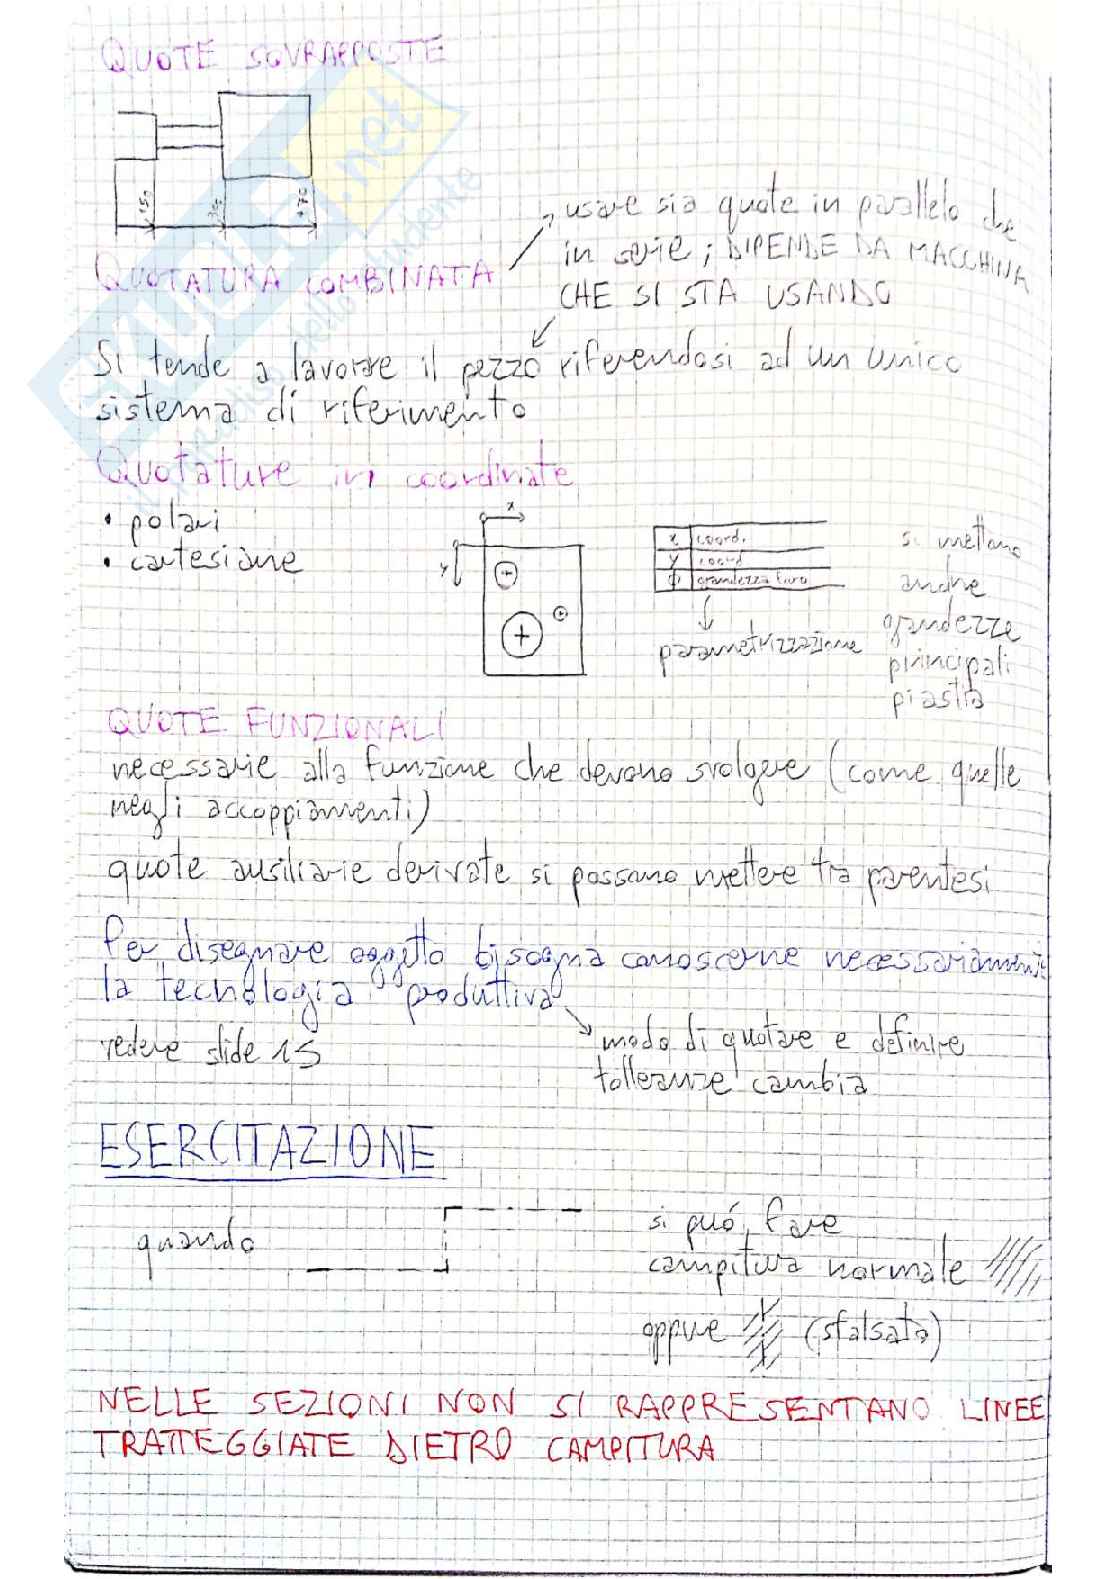 QUOTE SOVRAPPOSTE
150
QUOTATURA COMBINATA
usare sia quote in parallelo che
in serie; DIPENDE DA MACCHINA
CHE SI STA USANDO
Si tende a lavorare il pezzo riferendosi ad un unico
sistema di riferimento
Quotature in coordinate
• polari
• cartesiane
x
y
x coord.
y coord
φ grandezza foro
parametrizzazione
si mettono
anche
grandezze
principali
piastra
QUOTE FUNZIONALI
necessarie alla funzione che devono svolgere (come quelle
negli accoppiamenti)
quote ausiliarie derivate si possono mettere tra parentesi
Per disegnare oggetto bisogna conoscerne necessariamente
la tecnologia produttiva
vedere slide 15
modo di quotare e definire
tolleranze cambia
ESERCITAZIONE
quando
si può fare
campitura normale
oppure (sfalsata)
NELLE SEZIONI NON SI RAPPRESENTANO LINEE
TRATTEGGIATE DIETRO CAMPITURA
SKUOLA.net